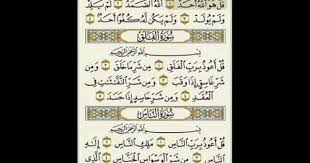 قُلْ هُوَ ٱللَّهُ أَحَدٌ ١ ٱللَّهُ ٱلصَّمَدُ ٢ لَمْ يَلِدْ
وَلَمْ يُولَدْ ٣ وَلَمْ يَكُن لَّهُۥ كُفُوًا أَحَدٌۢ ٤
سُورَةُ الْفَلَقِ
بِسْمِ ٱللَّهِ ٱلرَّحْمَٰنِ ٱلرَّحِيمِ
قُلْ أَعُوذُ بِرَبِّ ٱلْفَلَقِ ١ مِن شَرِّ مَا خَلَقَ ٢ وَمِن
شَرِّ غَاسِقٍ إِذَا وَقَبَ ٣ وَمِن شَرِّ ٱلنَّفَّٰثَٰتِ فِى
ٱلْعُقَدِ ٤ وَمِن شَرِّ حَاسِدٍ إِذَا حَسَدَ ٥
سُورَةُ النَّاسِ
بِسْمِ ٱللَّهِ ٱلرَّحْمَٰنِ ٱلرَّحِيمِ
قُلْ أَعُوذُ بِرَبِّ ٱلنَّاسِ ١ مَلِكِ ٱلنَّاسِ ٢
إِلَٰهِ ٱلنَّاسِ ٣ مِن شَرِّ ٱلْوَسْوَاسِ ٱلْخَنَّاسِ ٤ ٱلَّذِى